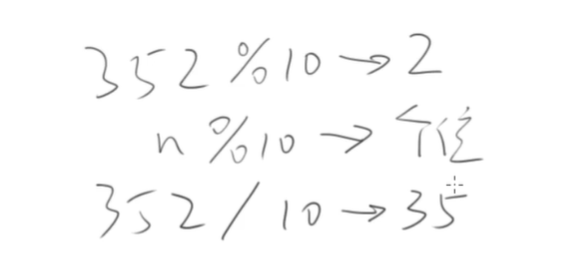 352%10→2
n%10→个位
352/10→35